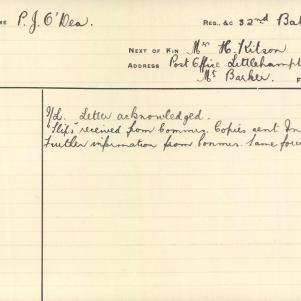 ME P. J. O'Dea. REG., &C 32nd Bat
NEXT OF KIN Mrs H. Kitson
ADDRESS Post Office Littlehampt
Mt Barker. F
I/L. Letter acknowledged.
"Slip" received from Commrs. Copies sent In
Further information from Commrs. Same forw